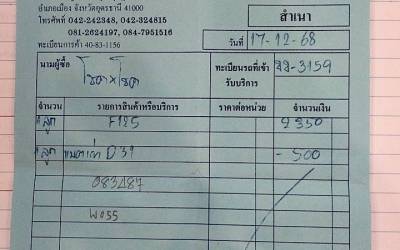 อำเภอเมือง จังหวัดอุดรธานี 41000
โทรศัพท์ 042-242348, 042-324815
081-2624197, 084-7951516
ทะเบียนการค้า 40-83-1156
สำเนา
วันที่ 17-12-68
นามผู้ซื้อ โชค x โชค
ทะเบียนรถที่เข้ารับบริการ -3159
จำนวน รายการสินค้าหรือบริการ ราคาต่อหน่วย จำนวนเงิน
1 ลูก F125 2350
1 ลูก แบตเก่า D31 -500
083487
W055